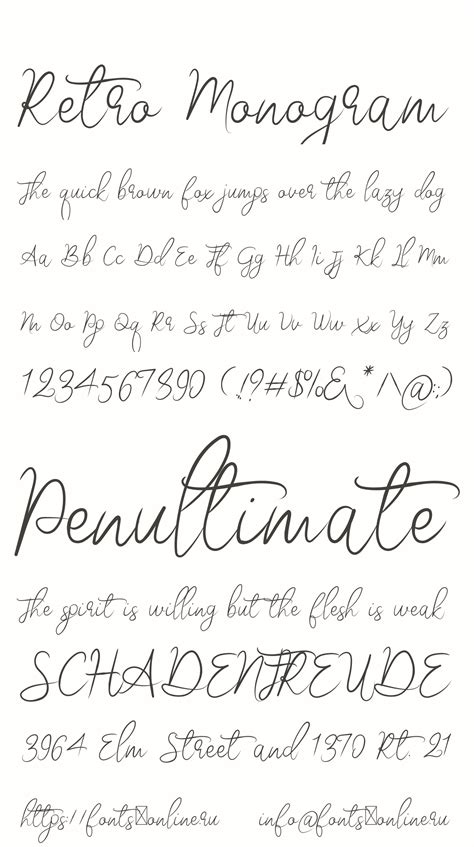 Retro Monogram
The quick brown fox jumps over the lazy dog
Aa Bb Cc Dd Ee Ff Gg Hh Ii Jj Kk Ll Mm
Nn Oo Pp Qq Rr Ss Tt Uu Vv Ww Xx Yy Zz
1234567890 (!?#$%&*/\@:;)
Penultimate
The spirit is willing but the flesh is weak
SCHADENFREUDE
3964 Elm Street and 1370 Rt. 21
https://fonts☒online.ru info@fonts☒online.ru